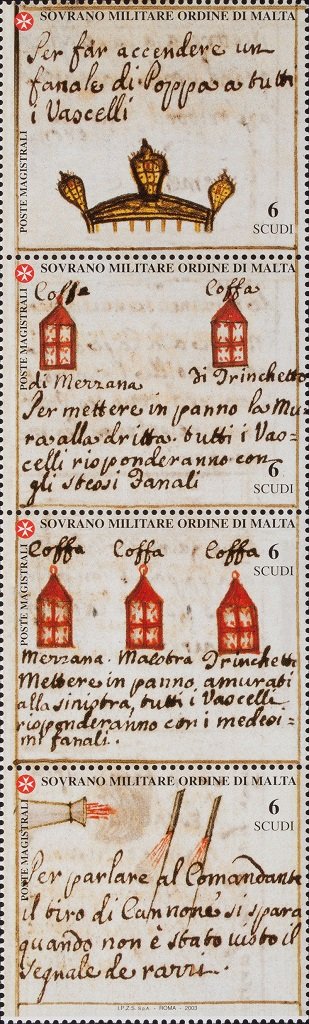 SOVRANO MILITARE ORDINE DI MALTA
POSTE MAGISTRALI
Per far accendere un
fanale di Poppa a tutti
i Vascelli
6
SCUDI
SOVRANO MILITARE ORDINE DI MALTA
POSTE MAGISTRALI
Coffa Coffa
di Mezzana di Trinchetto
Per mettere in panno la Mu=
ra alla dritta. tutti i Vas=
celli risponderanno con
gli stessi Fanali
6
SCUDI
SOVRANO MILITARE ORDINE DI MALTA
POSTE MAGISTRALI
6
SCUDI
Coffa Coffa Coffa
Mezzana. Maestra Trinchetto
Mettere in panno amurati
alla sinistra, tutti i Vascelli
risponderanno con i medesi=
mi fanali.
SOVRANO MILITARE ORDINE DI MALTA
POSTE MAGISTRALI
6
SCUDI
Per parlare al Comandante
il tiro di Cannone si spara
quando non è stato visto il
segnale de razzi.
I.P.Z.S. S.p.A. - ROMA - 2003